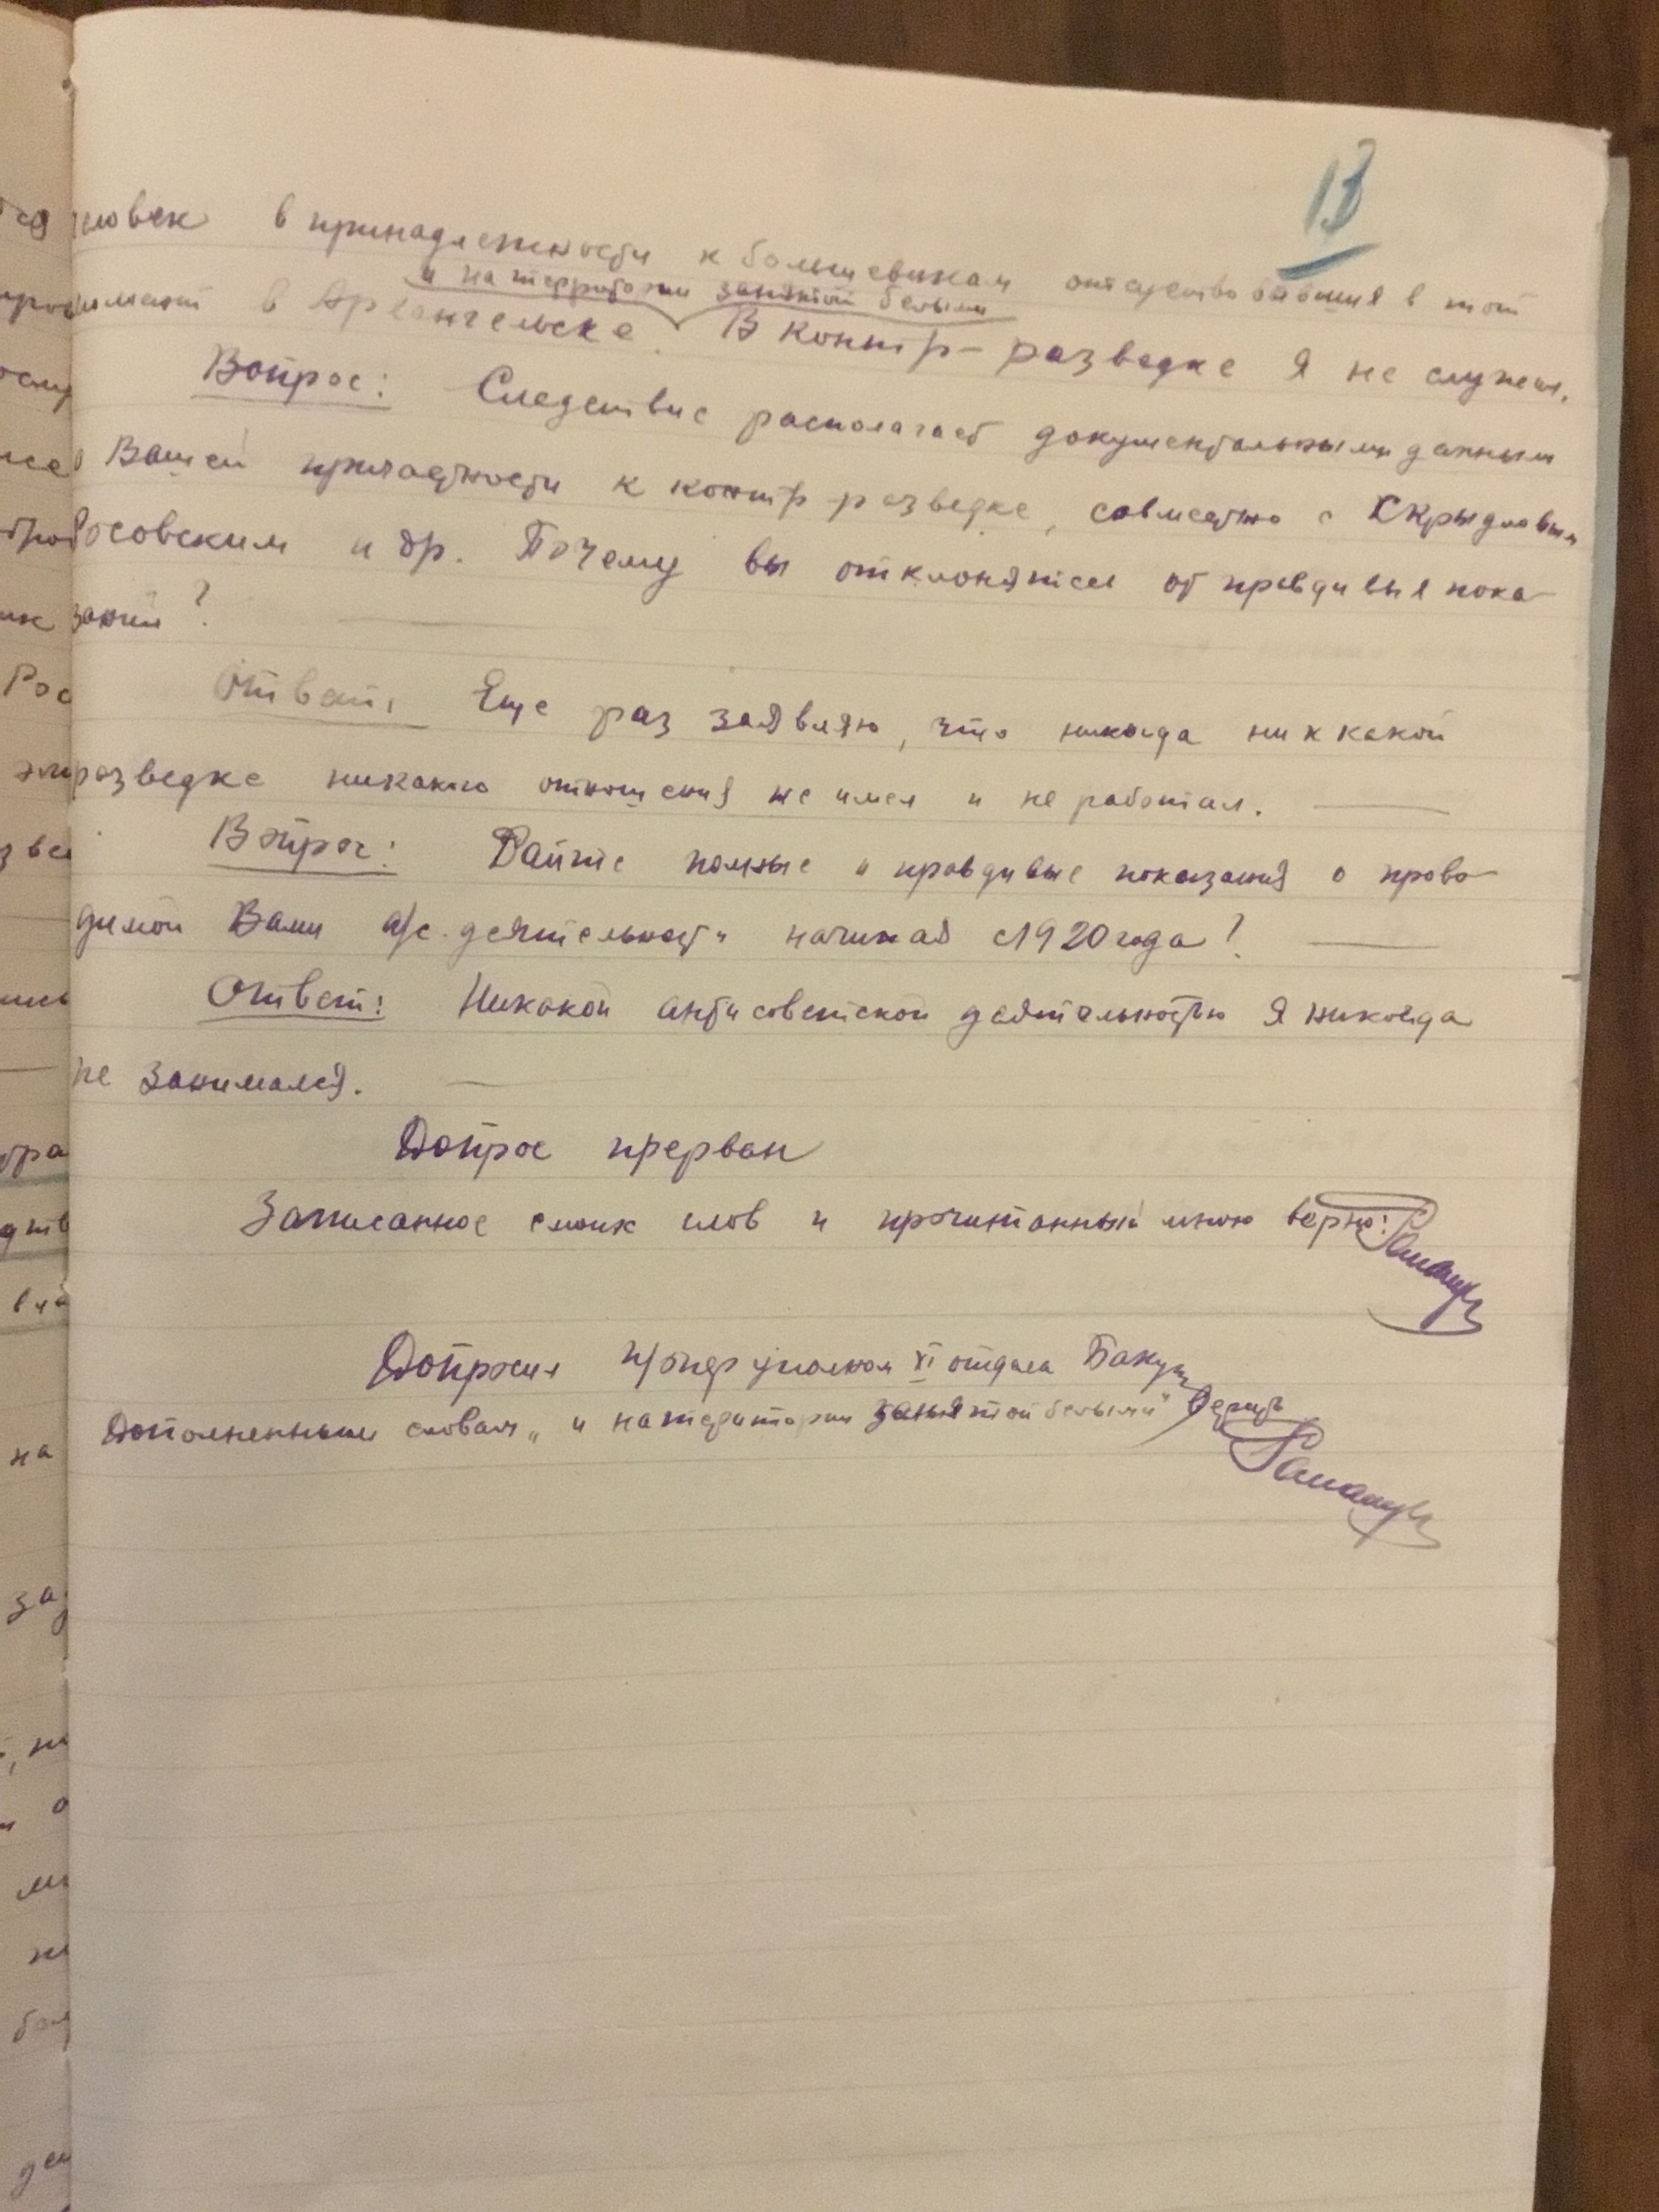 13
человек в принадлежности к большевикам отсутствовавших в тот
и на территории занятой белыми
момент в Архангельске. В контр-разведке я не служил.
Вопрос: Следствие располагает документальными данными
Вашей причастности к контр разведке, совместно с Скрыдловым
осовским и др. Почему вы отклоняетесь от правдивых пока-
заний?
Ответ: Еще раз заявляю, что никогда ни к какой
разведке никакого отношения не имел и не работал.
Вопрос: Дайте полные и правдивые показания о прово-
димой Вами а/с. деятельности начиная с 1920 года?
Ответ: Никакой антисоветской деятельностью я никогда
не занимался.
Допрос прерван
Записанное с моих слов и прочитанный мною верно:
Допросил опер уполном XI отдела
Дополненным словам „и на территории занятой белыми"